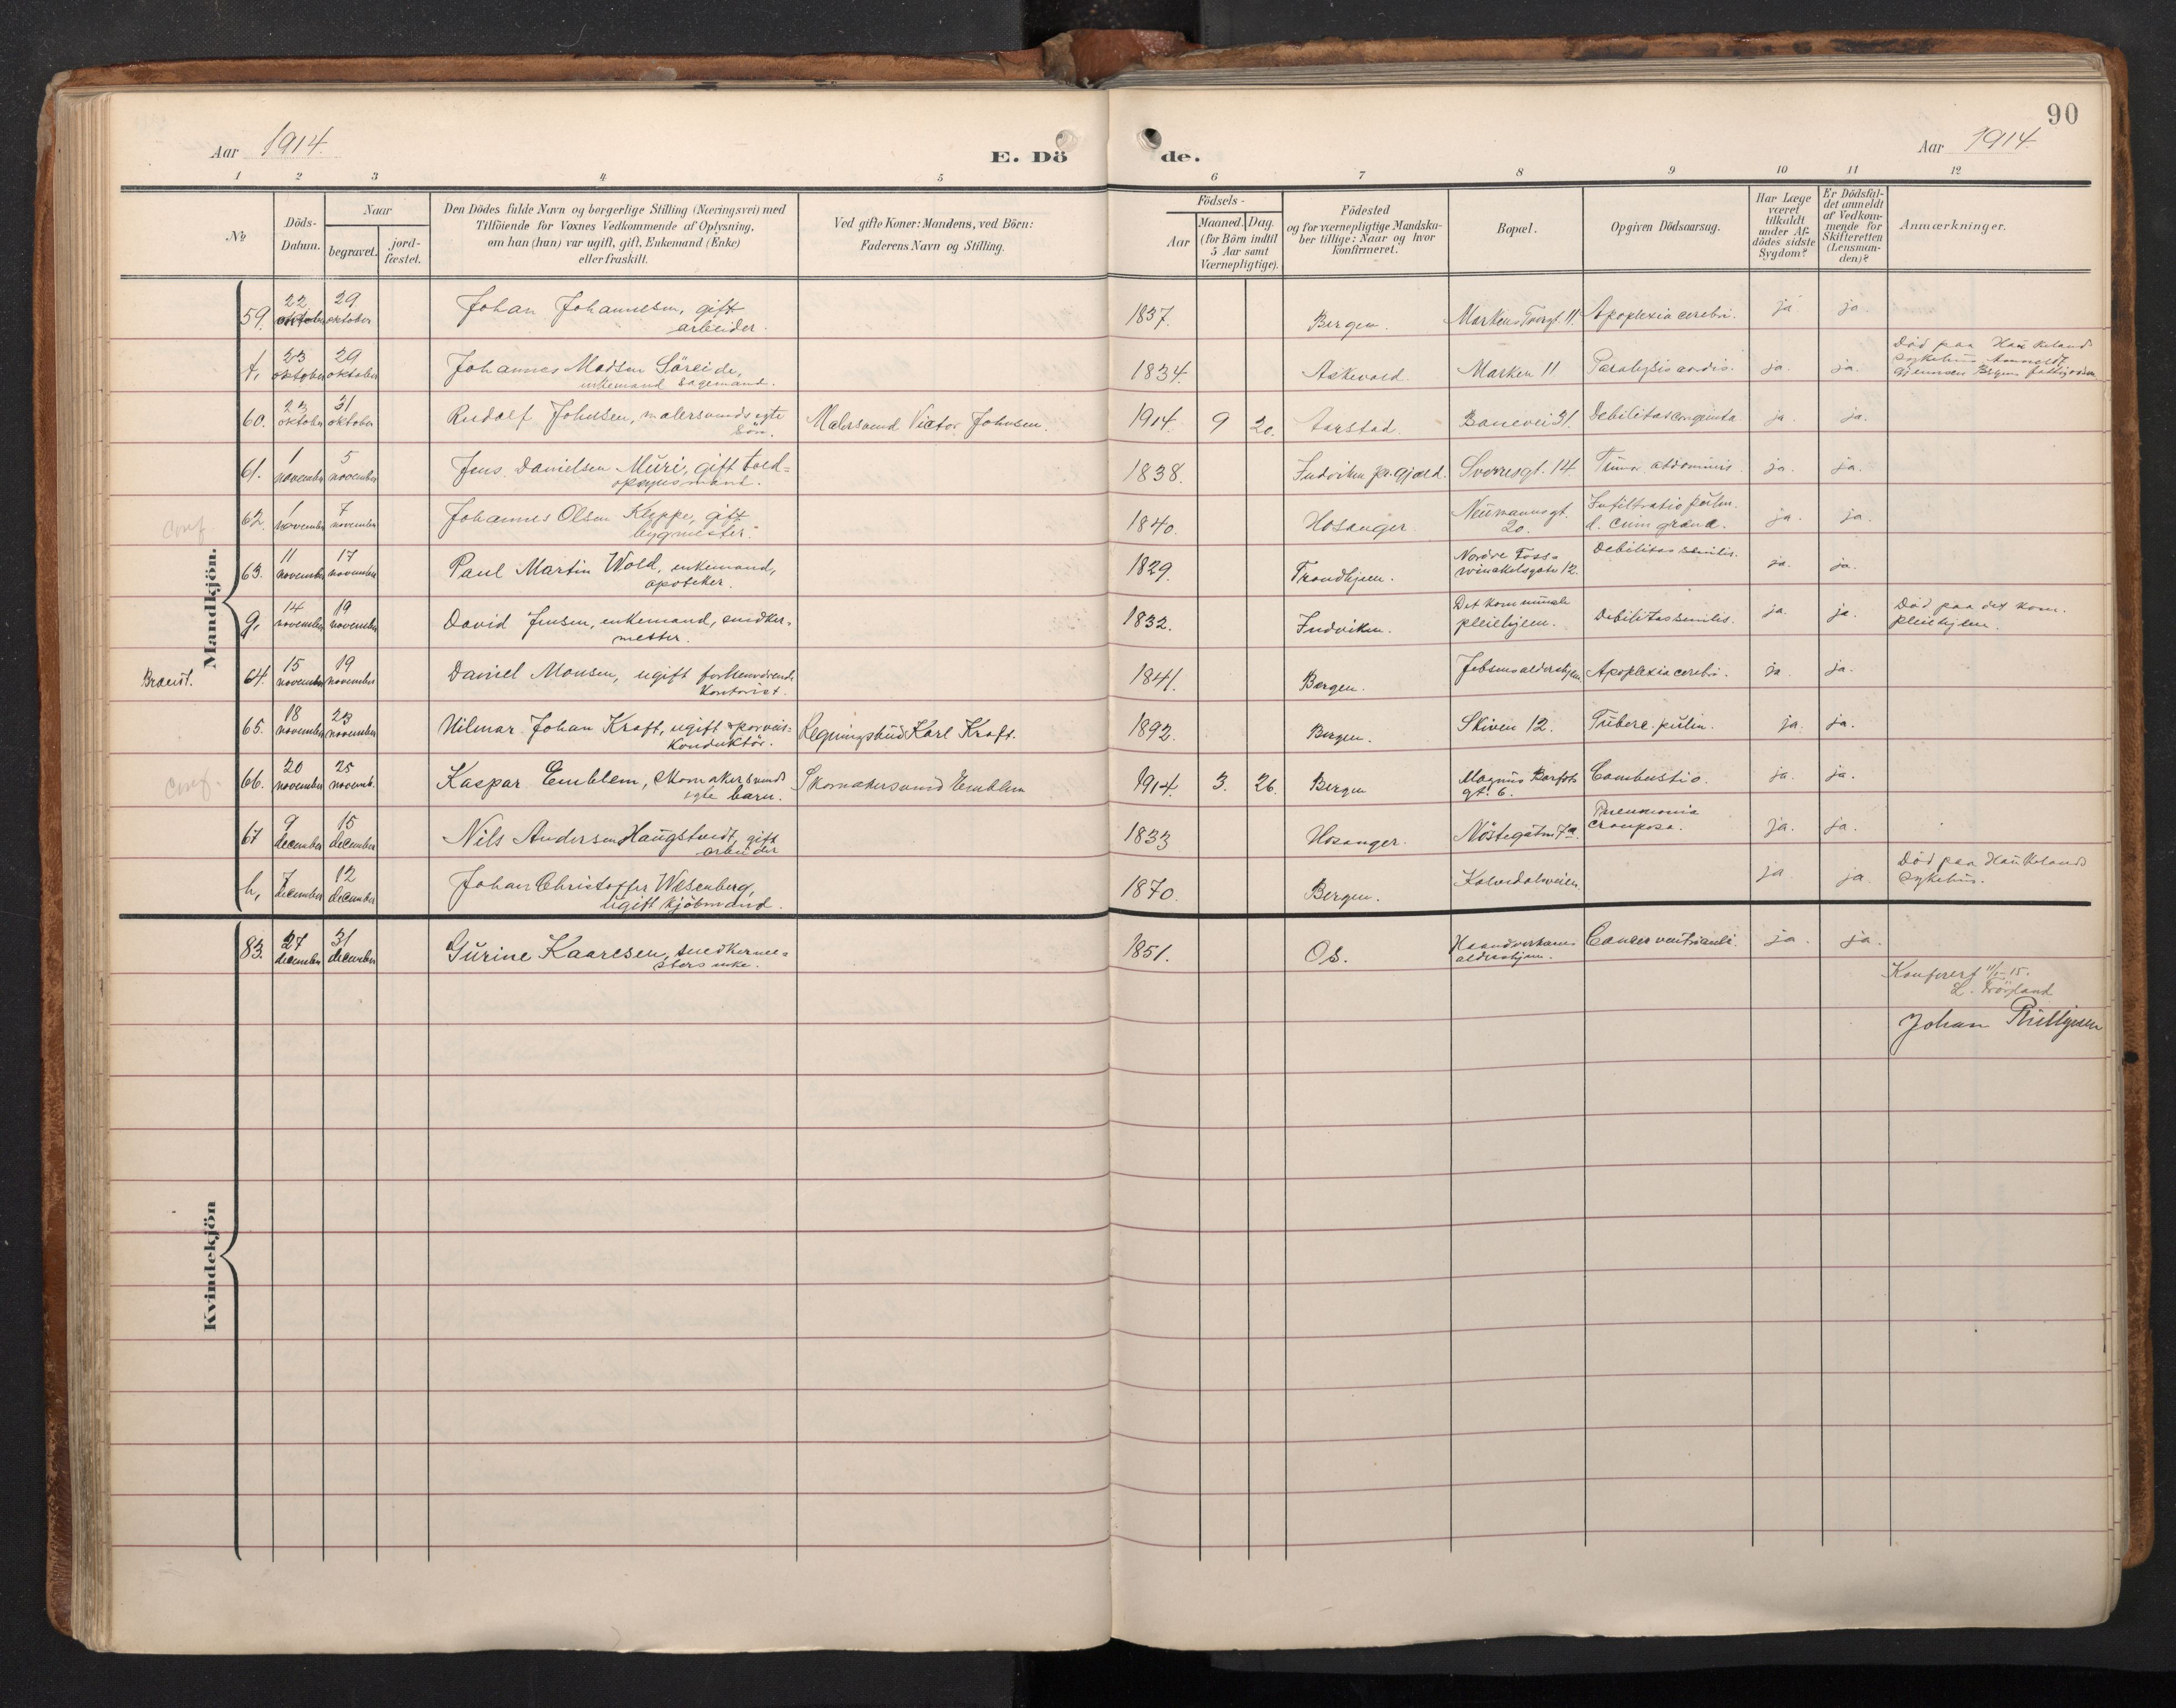 90
Aar 1914.
E. Dö
de.
Aar 1914.
1 2 3 4 5 6 7 8 9 10 11 12
№
Döds-
Datum.
Naar
begravet.
jord-
fæstet.
Den Dödes fulde Navn og borgerlige Stilling (Næringsvei) med
Tilföiende for Voxnes Vedkommende af Oplysning,
om han (hun) var ugift, gift, Enkemand (Enke)
eller fraskilt.
Ved gifte Koner: Mandens, ved Börn:
Faderens Navn og Stilling.
Födsels-
Aar
Maaned. Dag.
(for Börn indtil
5 Aar samt
Værnepligtige).
Födested
og for værnepligtige Mandska-
ber tillige: Naar og hvor
konfirmeret.
Bopæl.
Opgiven Dödsaarsag.
Har Læge
været
tilkaldt
under Af-
dödes sidste
Sygdom?
Er Dödsfal-
det anmeldt
af Vedkom-
mende for
Skifteretten
(Lensman-
den)?
Anmærkninger.
Mandkjön.
59. 22 oktober 29 oktober Johan Johannesen, gift
arbeider. 1837. Bergen. Marken Tvergt. 11. Apoplexia cerebri. ja ja.
f, 23 oktober 29 oktober Johannes Madsen Söreide,
enkemand sagemand. 1834. Askevold. Marken 11 Paralysis cordis. ja. ja. Död paa Haukeland
sykehus. Anmeldt
gjennem Bergens
60. 23 oktober 31 oktober Rudolf Johnsen, malersvends egte
sön. Malersvend Victor Johnsen. 1914. 9 20. Aarstad. Banevei 31. Debilitas congenita. ja. ja.
61. 1 november 5 november Jens Danielsen Muri, gift told-
opsynsmand. 1838. Indviken pr. gjæld. Sverresgt. 14. Tumor abdominis. ja. ja.
Conf.
62. 1 november 7 november Johannes Olsen Kleppe, gift
bygmester. 1840. Hosanger. Neumannsgt.
20. Infiltratio pulm.
ja. ja.
63. 11 november 17 november Paul Martin Wold, enkemand,
apoteker. 1829. Trondhjem. Nordre Foss-
winckelsgate 12. Debilitas senilis. ja. ja.
g, 14 november 19 november David Jensen, enkemand, snedker-
mester. 1832. Indviken. Det kommunale
pleiehjem. Debilitas senilis. ja. ja. Död paa det kom.
pleiehjem.
64. 15 november 19 november Daniel Monsen, ugift forhenværende
kontorist. 1841. Bergen. Jebsens aldershjem. Apoplexia cerebri. ja ja.
65. 18 november 23 november Hilmar Johan Kraft, ugift sporveis-
konduktör. Regningsbud Karl Kraft. 1892. Bergen. Skiven 12. Tuberc. pulm. ja. ja.
Conf.
66. 20 november 25 novemb. Kaspar Emblem, skomakersvends
egte barn. Skomakersvend Emblem 1914. 3. 26. Bergen Magnus Barfots
gt. 6. Combustio. ja. ja.
67 9 december 15 december Nils Andersen Haugstvedt, gift
arbeider 1833 Hosanger. Nöstegaten 7a. Pneumonia
crouposa. ja. ja.
h, 7 december 12 december Johan Christoffer Wesenberg,
ugift kjöbmand. 1870. Bergen. Kalvedalsveien. ja ja Död paa Haukeland
sykehus.
Kvindekjön
83. 27 december 31 december Gurine Kaaresen, snedkerme-
sters enke. 1851. Os. Haandverkernes
aldershjem. Cancer ventriculi. ja. ja.
Konferert 11/1-15.
Johan